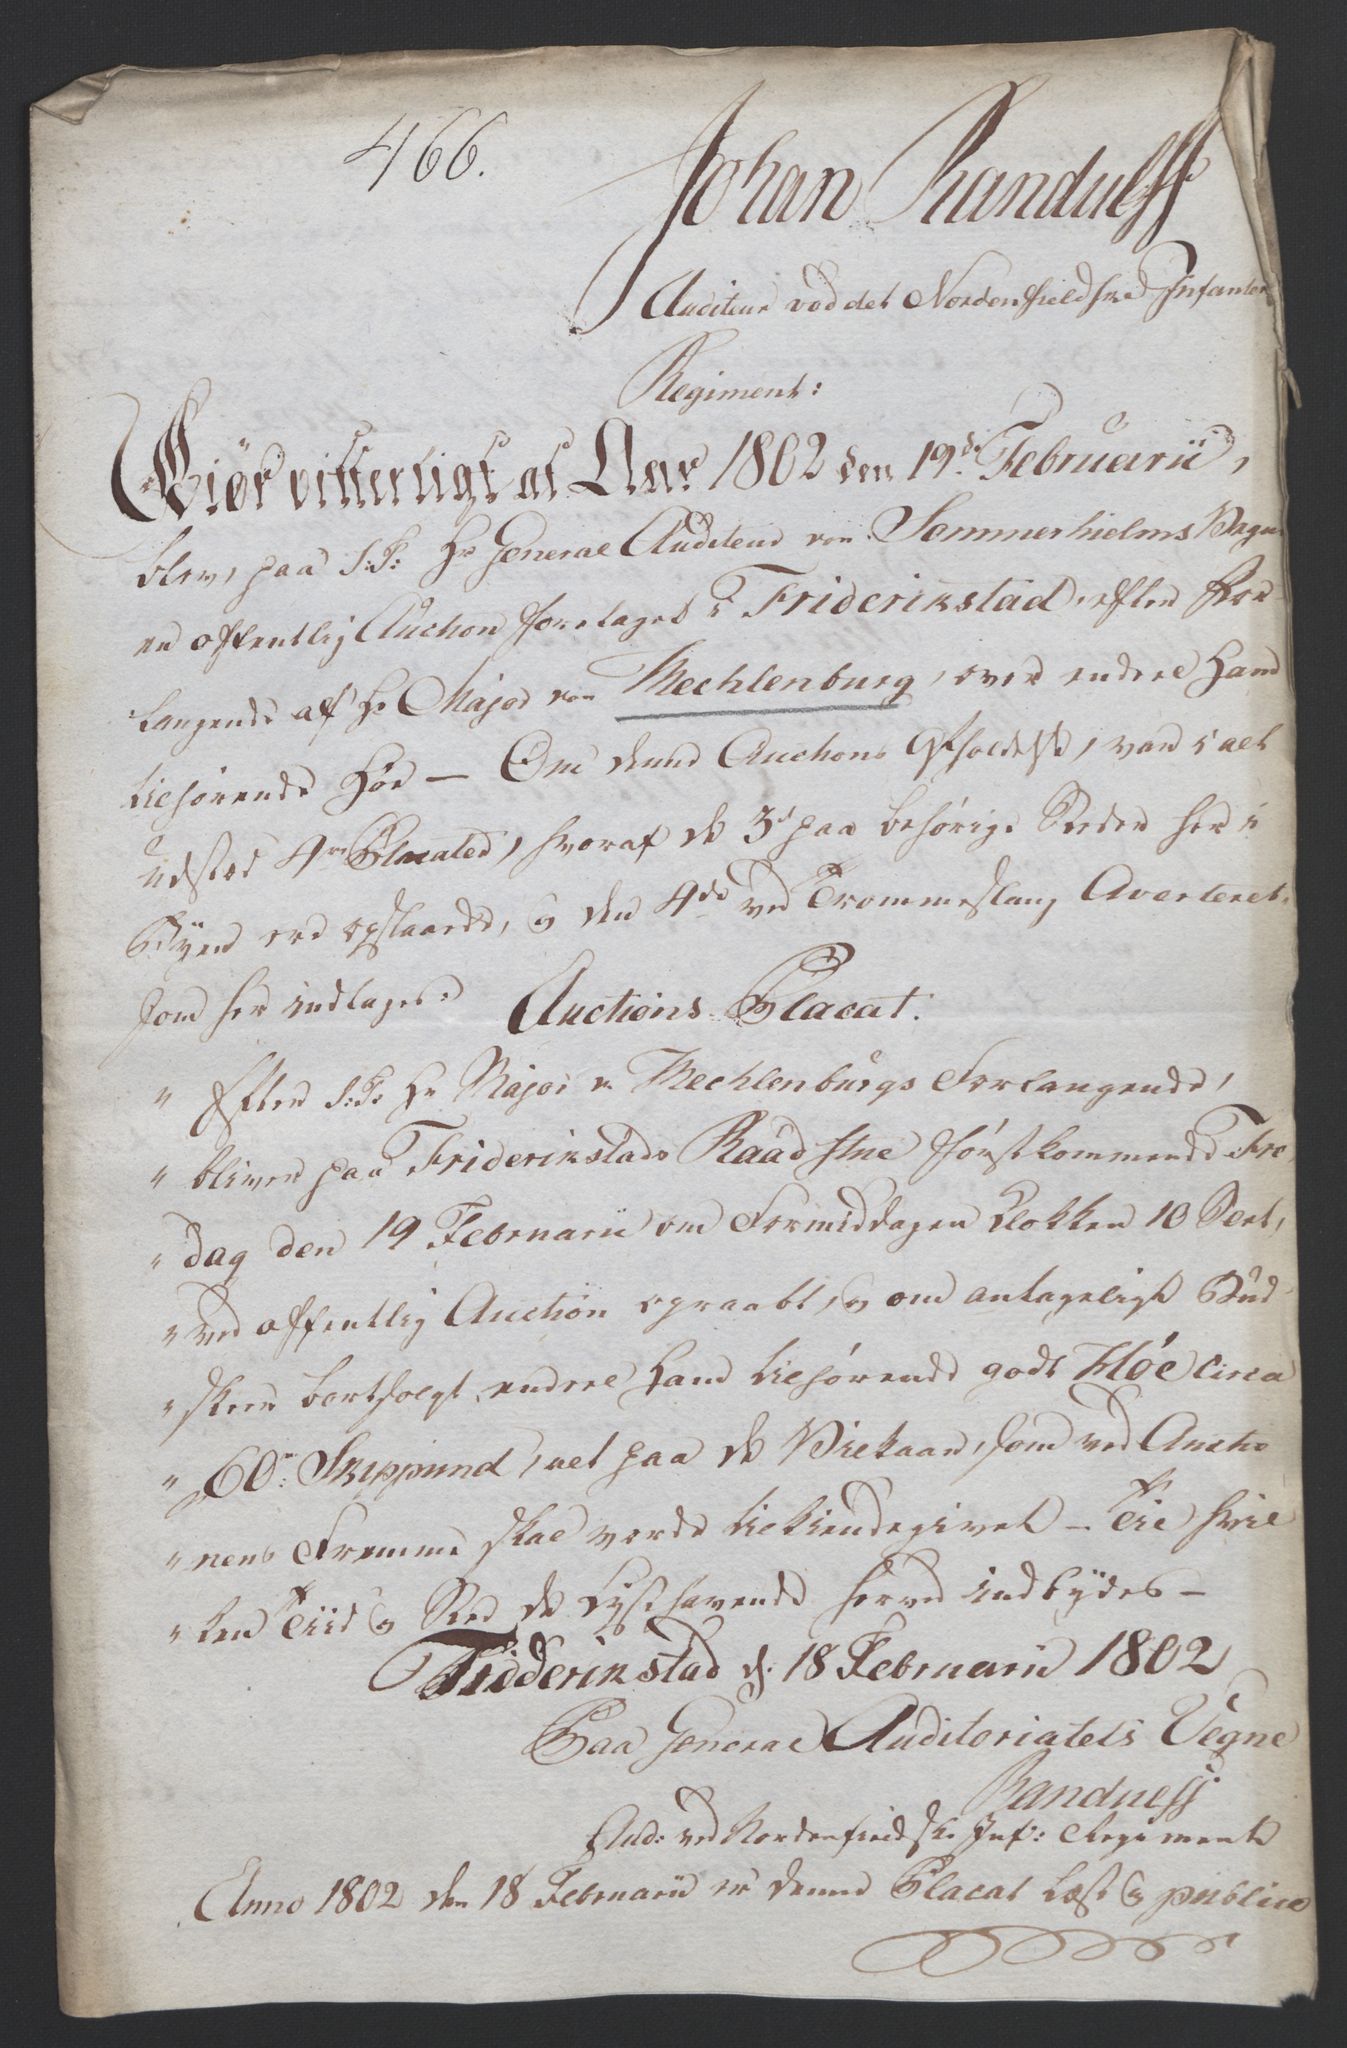 466.
Johan Randulff
Auditeur ved det Nordenfieldske Infanter
Regiment:
Giør vitterligt at Aar 1802 den 19de Februarii,
blev, paa S:T: Hr General Auditeur von Sommerhielms Vegne
en offentlig Auction foretaget i Friderikstad, efter For-
langende af Hr Major von Mechlenburg, over endeel Ham
tilhørende Høe — Om denne Auctions Afholdelse, var i alt
udsted 4re Placater, hvoraf de 3de paa behørige Steder her i
Byen ere opslaaede, og den 4de ved Trommeslag Averteret,
som her indtages:
Auctions-Placat.
" Efter S:T: Hr Major v. Mechlenburgs Forlangende,
" bliver paa Friderikstads Raadstue førstkommende Fre
" dag den 19 Februarii om Formiddagen Klokken 10 Slet,
" ved offentlig Auction opraabt, og om antageligt Bud
" skeer bortsolgt, endeel Ham tilhørende godt Høe circa
" 60 Skippund, alt paa de Vilkaar, som ved Auctio
" nens Fremme skal vorde tilkiendegivet — Til hvil
" ken Tiid og Sted de Lysthavende herved indbydes —
Friderikstad d. 18 Februarii 1802
Paa General Auditoriatets Vegne
Randulff
Aud: ved Nordenfieldske Inf: Regiment
Anno 1802 den 18 Februarii er denne Placat Læst og publice